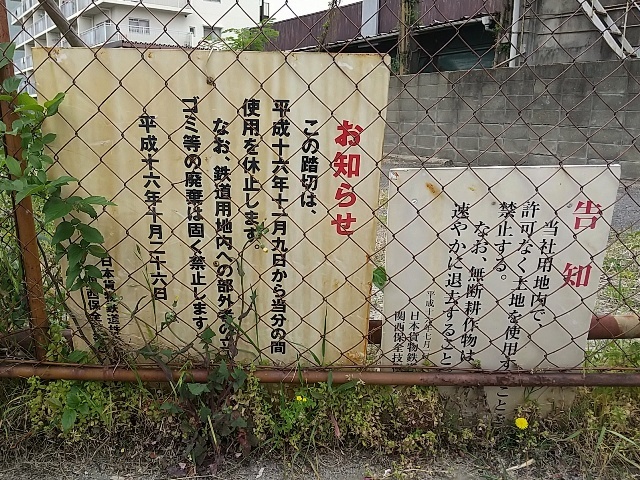 お知らせ
この踏切は、
平成十六年十一月九日から当分の間
使用を休止します。
なお、鉄道用地内への部外者の立
ゴミ等の廃棄は固く禁止します
平成十六年十月二十六日
日本貨物鉄道株
告知
当社用地内で、
許可なく土地を使用することを
禁止する。
なお、無断耕作物は
速やかに退去すること
日本貨物鉄
関西保全技